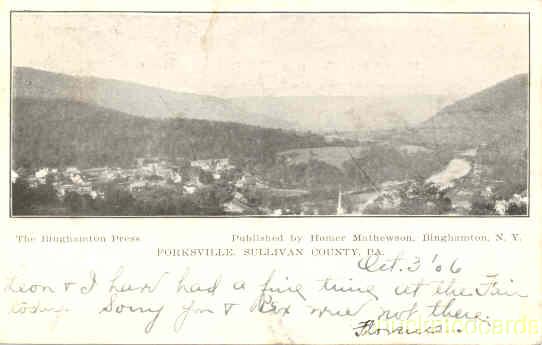 The Binghamton Press
Published by Homer Mathewson, Binghamton, N. Y.
FORKSVILLE, SULLIVAN COUNTY, PA.
Oct. 3 '06
Leon & I have had a fine time at the Fair
today. Sorry you & Bex were not there.